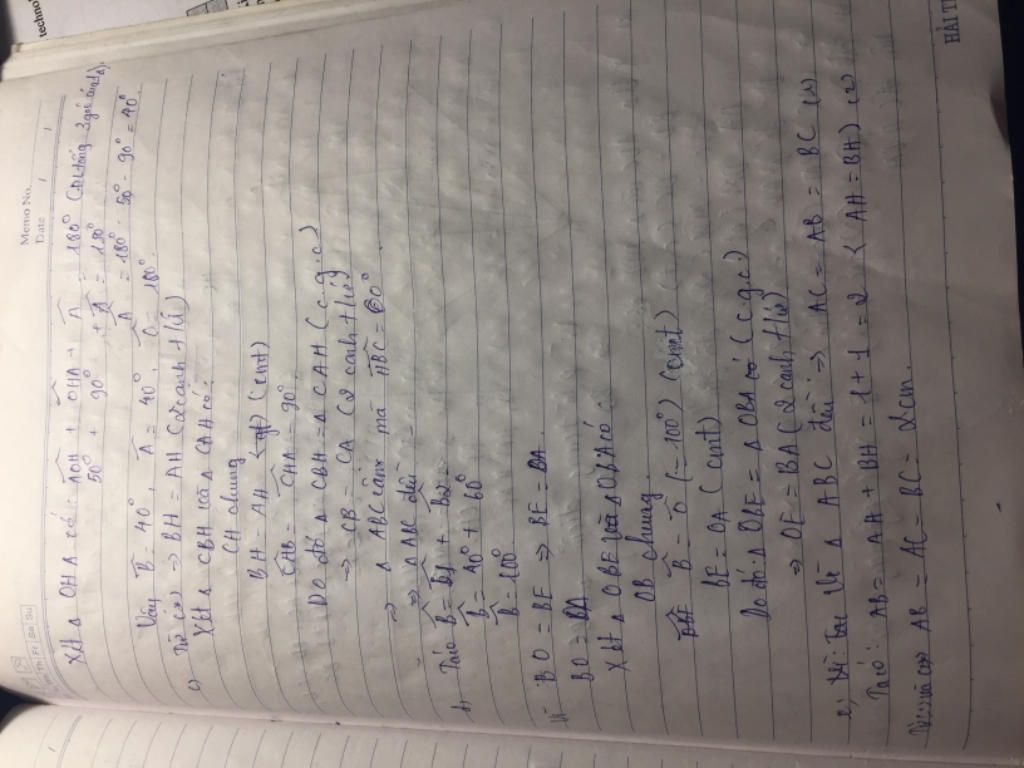 techno
Memo No.
Date / /
Xét Δ OHA có: AOH + OHA + A = 180° (Đl tổng 3 góc
50° + 90° + A = 180°
A = 180° - 50° - 90° = 40°
Vậy B = 40°, A = 40°, O = 100°.
=> BH = AH (2 cạnh t/ứ)
c) Xét Δ CBH và Δ CAH có
CH chung
BH = AH (cmt)
CHB = CHA = 90°
Do đó Δ CBH = Δ CAH (c.g.c)
=> CB = CA (2 cạnh t/ứ)
=> Δ ABC cân mà HBC = 60°
=> Δ ABC đều
Ta có B = B1 + B2
B = 40° + 60°
B = 100°
Vì BO = BE => BE = BA
BO = BA
Xét Δ OBE và Δ OBA có
OB chung
B = O (= 100°) (cmt)
BE = OA (cmt)
Do đó: Δ OBE = Δ OBA có (c.g.c)
=> OE = BA (2 cạnh t/ứ)
e, Vì Δ ABC đều => AC = AB = BC (1)
Ta có: AB = AH + BH = 1 + 1 = 2 (AH = BH) (2)
AB = AC = BC = 2cm.
HẢI T